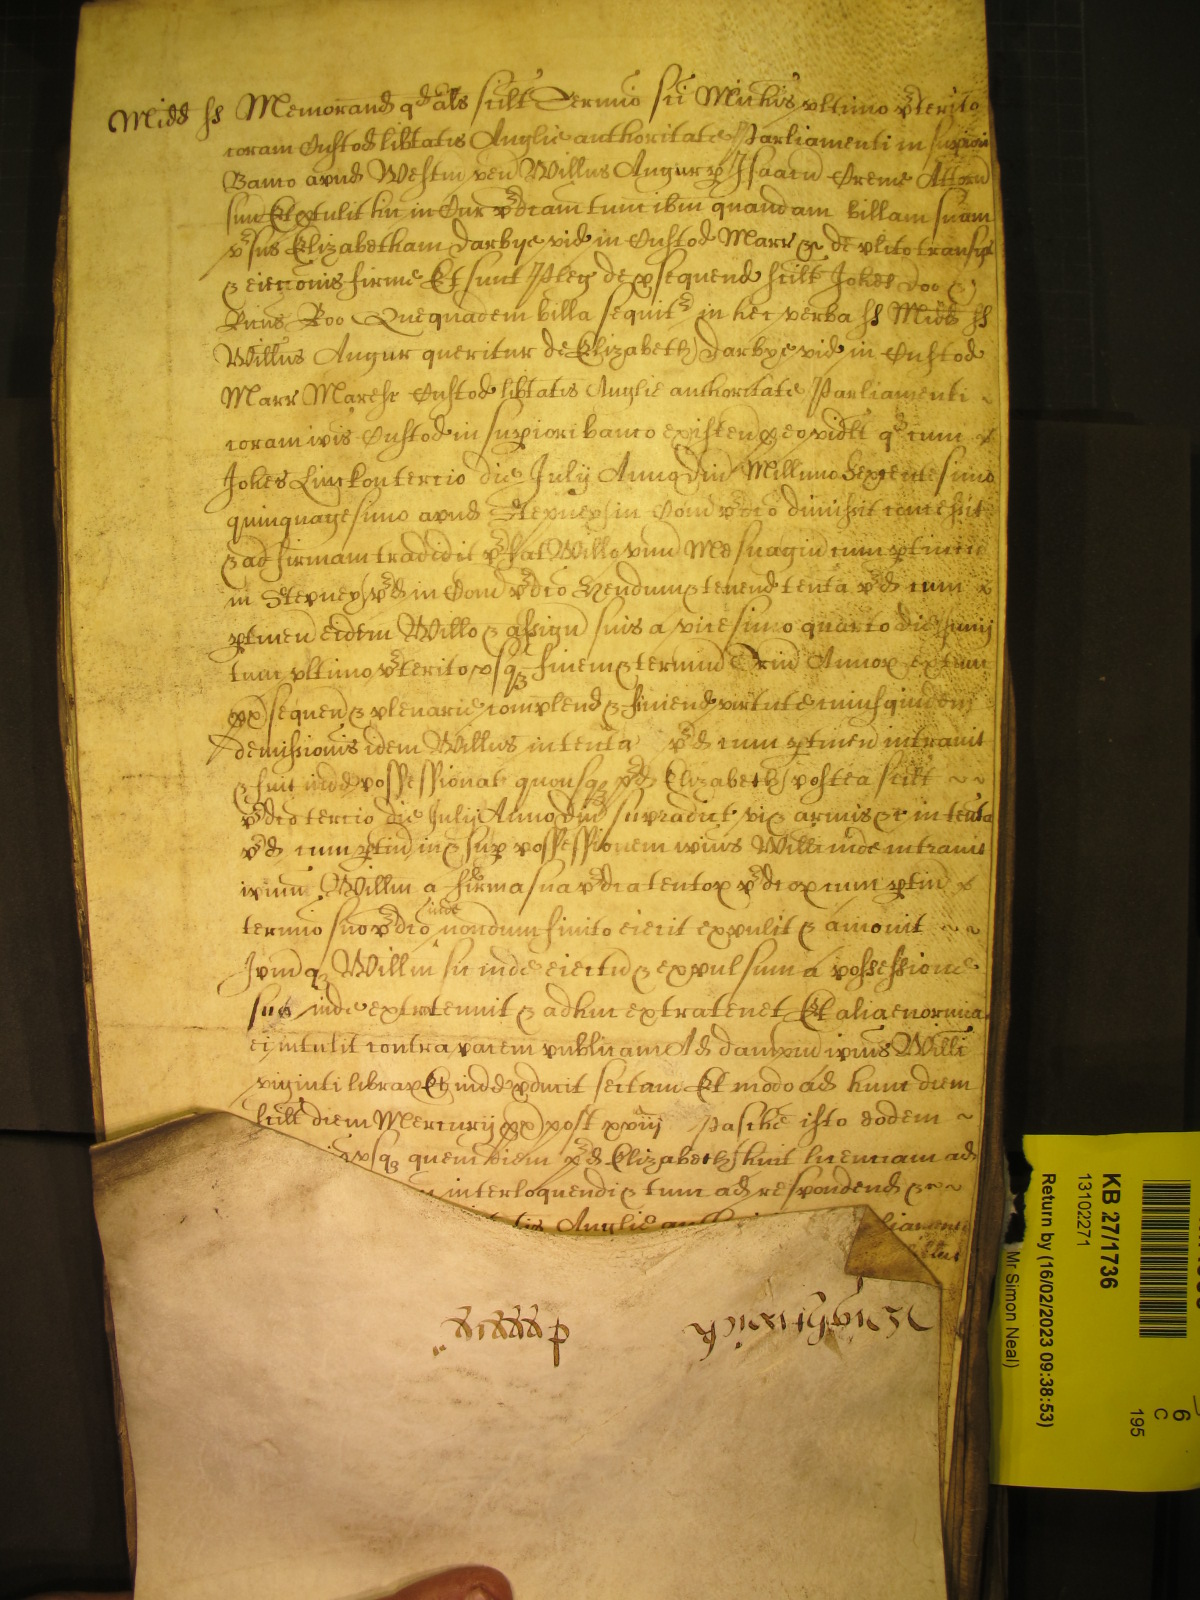 Midd ss Memorand qd als scilt Termio sci Michis ultimo p̃terito
coram Custod libtatis Anglie authoritate Parliamenti in supiori
Banco apud Westm ven Willus Angur p Isaacu Creme Attorn
suu Et ptulit hic in Cur p̃dcam tunc ibm quandam billam suam
ṽsus Elizabetham Darbye vid in Custod Marr &c de plito transgr
& eieccionis firme Et sunt Pleg de psequend scilt Johes Doo &
Ricus Roo Que quadem billa sequit in hec verba ss Midd ss
Willus Angur queritur de Elizabeth Darbye vid in Custod
Marr Maresc Custod libtatis Anglie authoritate Parliamenti
coram ipis Custod in supiori banco existen p eo videlt qd cum
Johes Linckon tercio die Julij Anno Dni Millimo Sexcentesimo
quinquagesimo apud Stepney in Com p̃dco dimisit concessit
& ad firmam tradidit p̃fat Willo unu Mesuagiu cum ptincijs
in Stepney p̃d in Com p̃dco Hendum & tenend tenta p̃d cum
ptinen eidem Willo & assign suis a vicesimo quarto die Junij
tunc ultimo p̃terito usq finem & terminu Triu Annox extunc
px sequen & plenarie complend & finiend virtute cuiusquidem
demissionis idem Willus in tenta p̃d cum ptinen intravit
& fuit inde possessionat quousq p̃d Elizabeth postea scilt
p̃dco tercio die Julij Anno Dni supradict vi & armis &c in tenta
p̃d cum ptin in & sup possessionem ipius Willi inde intravit
ipium Willm a firma sua p̃dca tentox p̃dcox cum ptin
termino suo p̃dco inde nondum finito eiecit expulit & amovit
Ipmq Willm sic inde eiectu & expulsum a possessione
sua inde extratenuit & adhuc extratenet Et alia enormia
ei intulit contra pacem publicam Ad dampnu ipius Willi
viginti librax Et inde pducit sectam Et modo ad hunc diem
scilt diem Mercurij px post xviij Pasche isto eodem
usq quem diem p̃d Elizabeth huit licenciam ad
interloquendi & tunc ad respondend &c
tis Anglie auth liamenti
KB 27/1736
13102271
Return by (16/02/2023 09:38:53)
Mr Simon Neal)
6
C
195